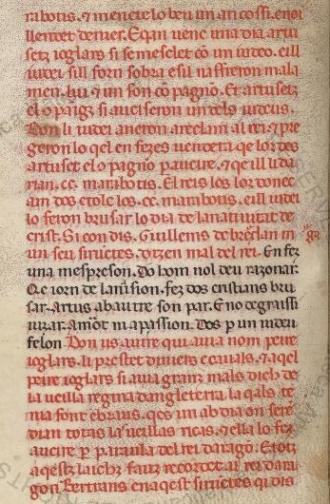 rabotis. ⁊ men cre lo ben un an cossi. e no il
lenret denier. E qan uenc una dia artu
setz ioglars si se mesclet cō un iudeo. e ill
iudei sill foron sobra e sil nafferon mala
men. lui ⁊ un son cōpagno. Et artusetz
el cōpaigz si auciseron un dels iudeus.
Don li iudei aneron a reclam al rei. ⁊ pre
geron lo qel en fezes uendeta qe lor des
artuset e lo pagno ꝑ aucire. ⁊ qe ill li da
rian. cc. marabotis. El reis los lor donec
am dos. e tolc los. cc. marabotis. e ill iudei
lo feron brusar lo dia de la natiuitat de
crist. Si con dis. Guillems de bergedan in
un seu siruētes. dizen mal del rei. En fez
una mespreson. Do hom nol deu razonar.
Qe iorn de la naision. fez dos cristians bru
sar. artus ab autre son par. E no degra issi
iuzar. A mort ni a passion. Dos ꝑ un iudeu
felon. Don us autre qi auia nom peire
ioglars. li prestet diniers e cauals. ⁊ aqel
peire ioglars si auia granz mals dich de
la ueilla regina dangleterra. la qals te
nia font ebraus. qes un abadia on se ren
dian totas las ueillas ricas. ⁊ ella lo fez
aucire ꝑ paraula del rei daragō. E totz
aqestz laichz faitz recordet al rei dara
gon. Bertrans en aqest siruētes qi dis